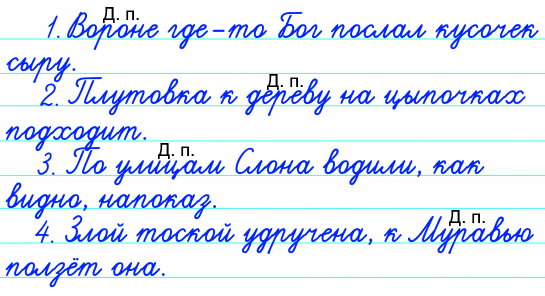 Д. п.
1. Вороне где-то Бог послал кусочек
сыру.
Д. п.
2. Плутовка к дереву на цыпочках
подходит.
Д. п.
3. По улицам Слона водили, как
видно, напоказ.
Д. п.
4. Злой тоской удручена, к Муравью
ползёт она.